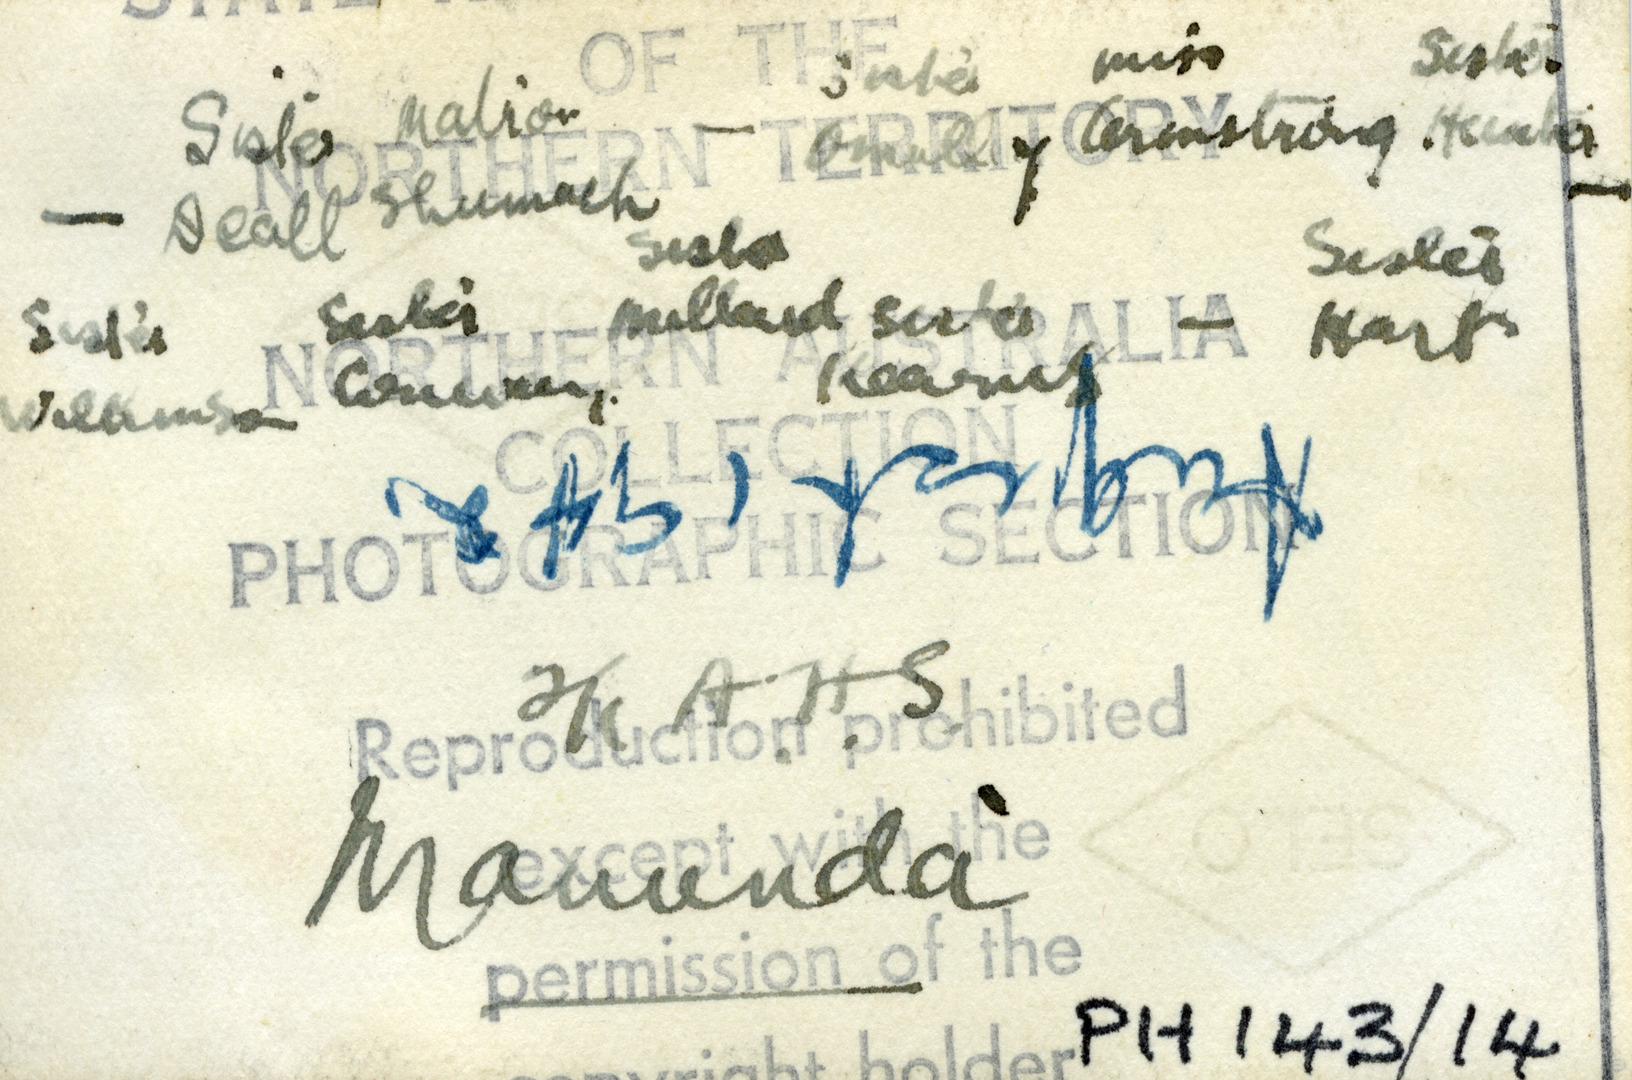 OF THE
Sister miss Sister
Sister Matron — Omally Armstrong Hunter
NORTHERN TERRITORY
— Deall Shumach —
Sister Sister
Sister Sister Milland Sister — Hart
NORTHERN AUSTRALIA
Williamson Conway Kearns
COLLECTION
August 1942
PHOTOGRAPHIC SECTION
A.H.S.
Reproduction prohibited
Manunda
except with the
SELO
permission of the
PH 143/14
copyright holder